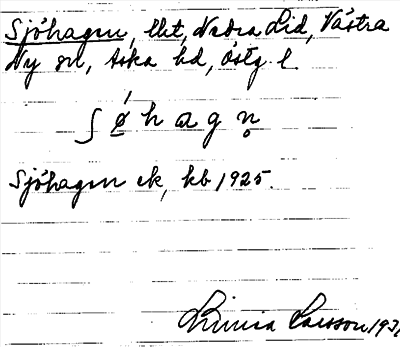 Sjöhagen, lht, Nedra Lid, Västra
Ny sn, Aska hd, Östg. l.
ʃǿhagn̥
Sjöhagen ek, kb 1925.
Linnea Larsson 193